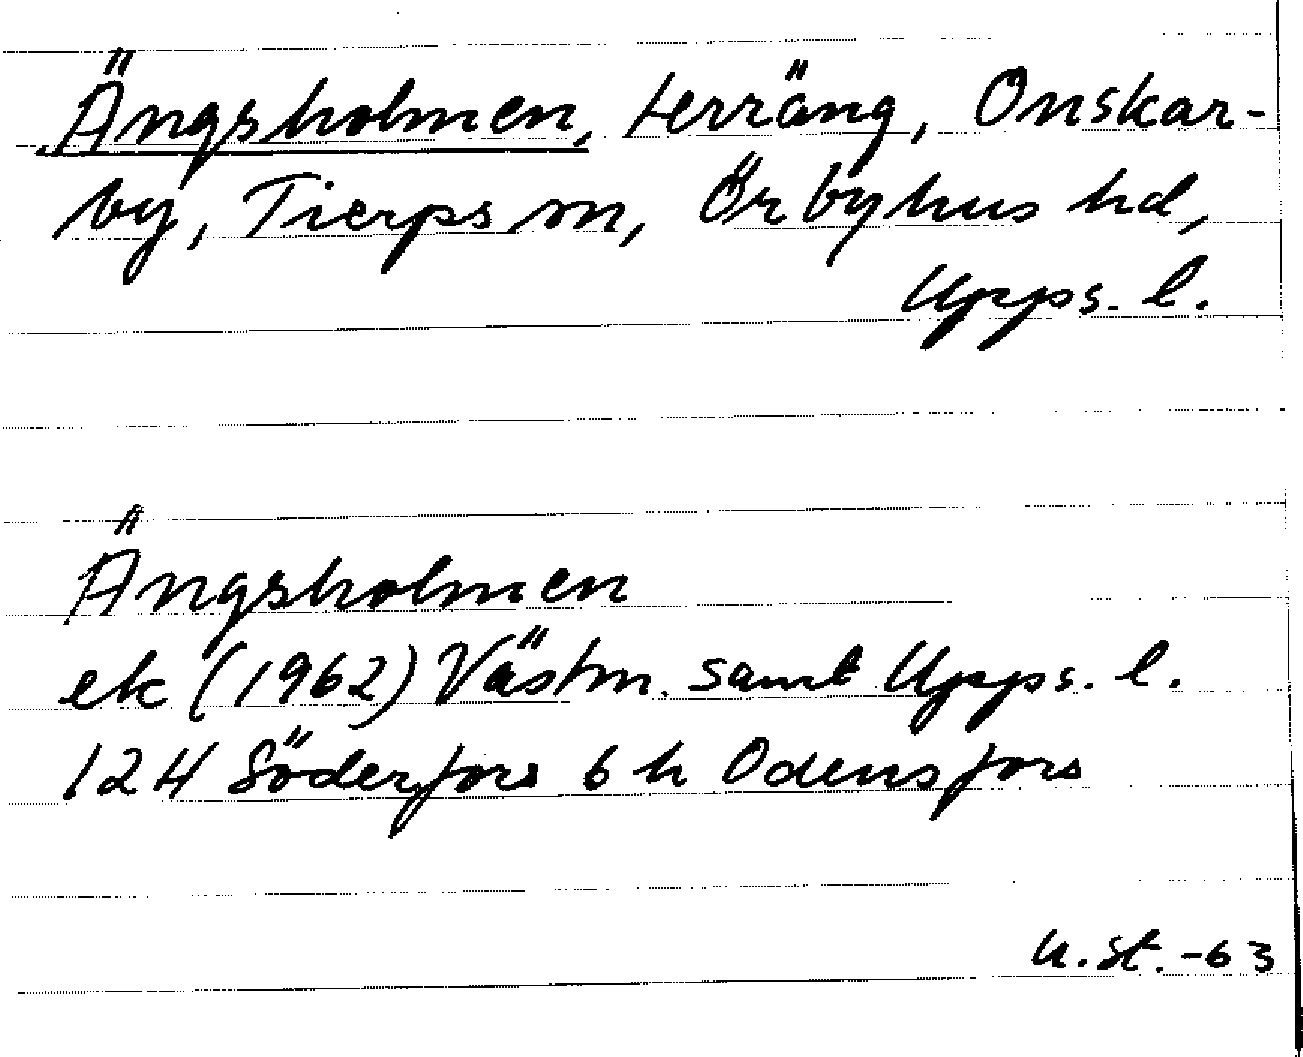 Ängsholmen, terräng, Onskar-
by, Tierps sn, Örbyhus hd,
Upps. l.
Ängsholmen
ek (1962) Västm. samt Upps. l.
124 Söderfors 6 h Odensfors
U. St. -63